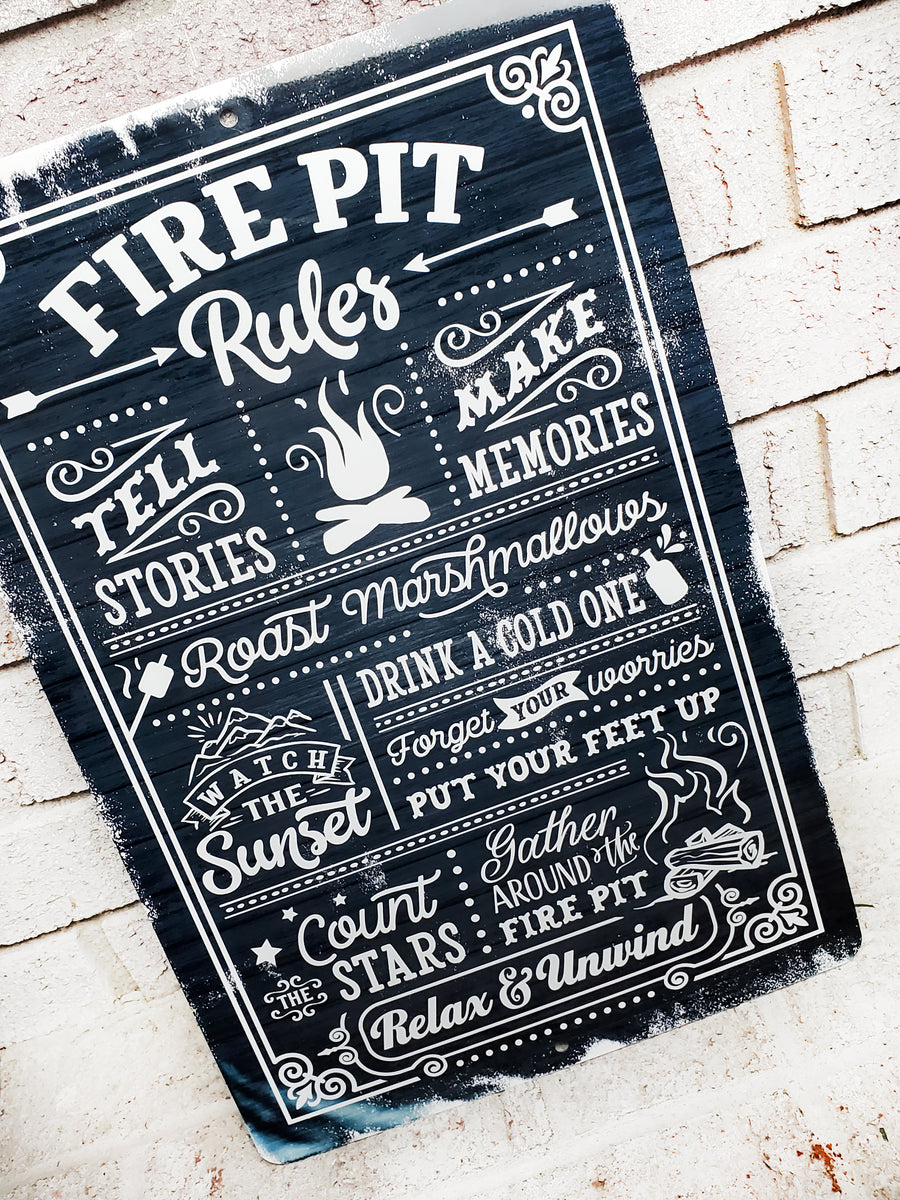 FIRE PIT
Rules
TELL
STORIES
MAKE
MEMORIES
Roast Marshmallows
WATCH
THE
Sunset
DRINK A COLD ONE
Forget YOUR worries
PUT YOUR FEET UP
Count
THE STARS
Gather
AROUND the
FIRE PIT
Relax & Unwind